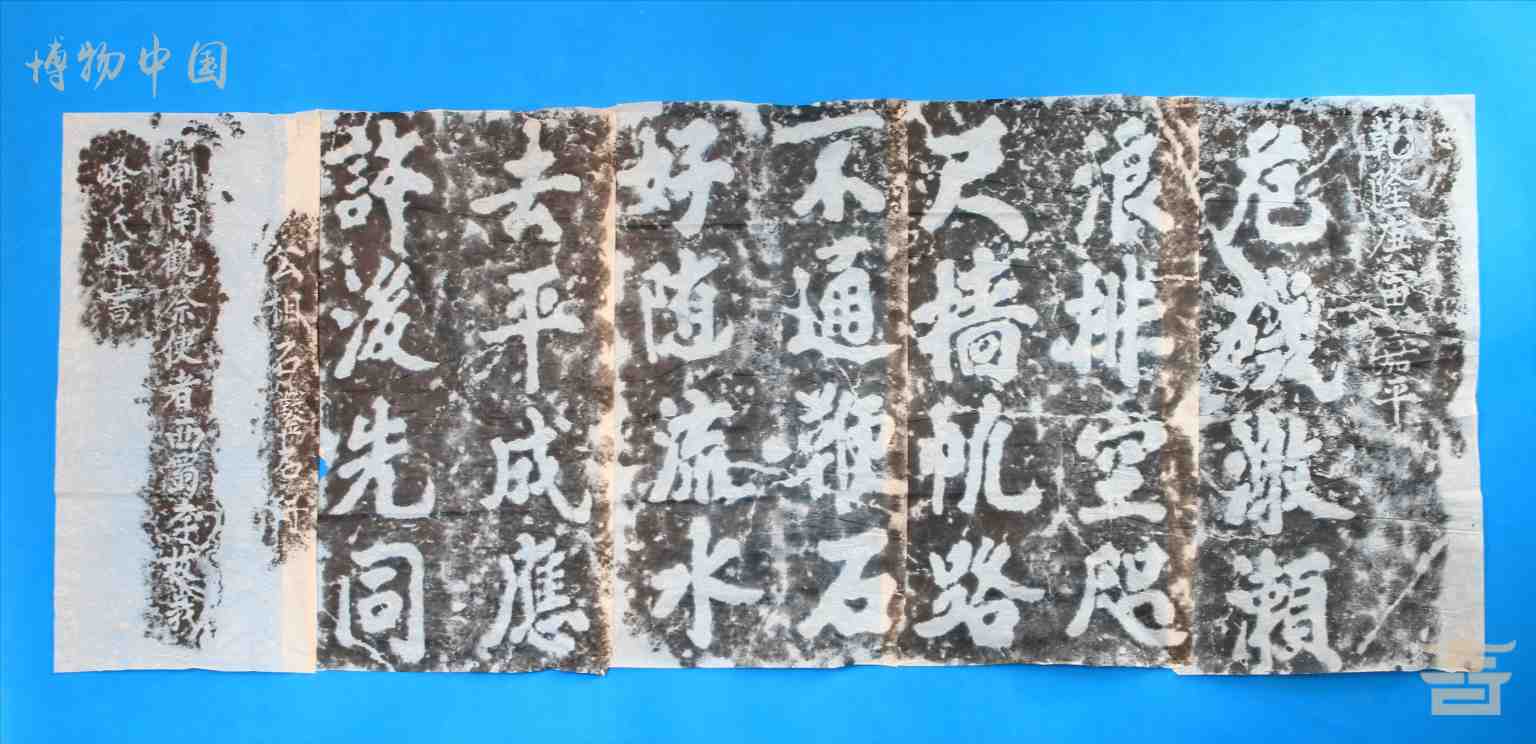 博物中国
乾隆
危磯激瀬
浪排空咫
尺檣帆路
不通難石
好随流水
去平成應
許後先同
公祖名
荆南觀察使者西蜀李
峰氏題書